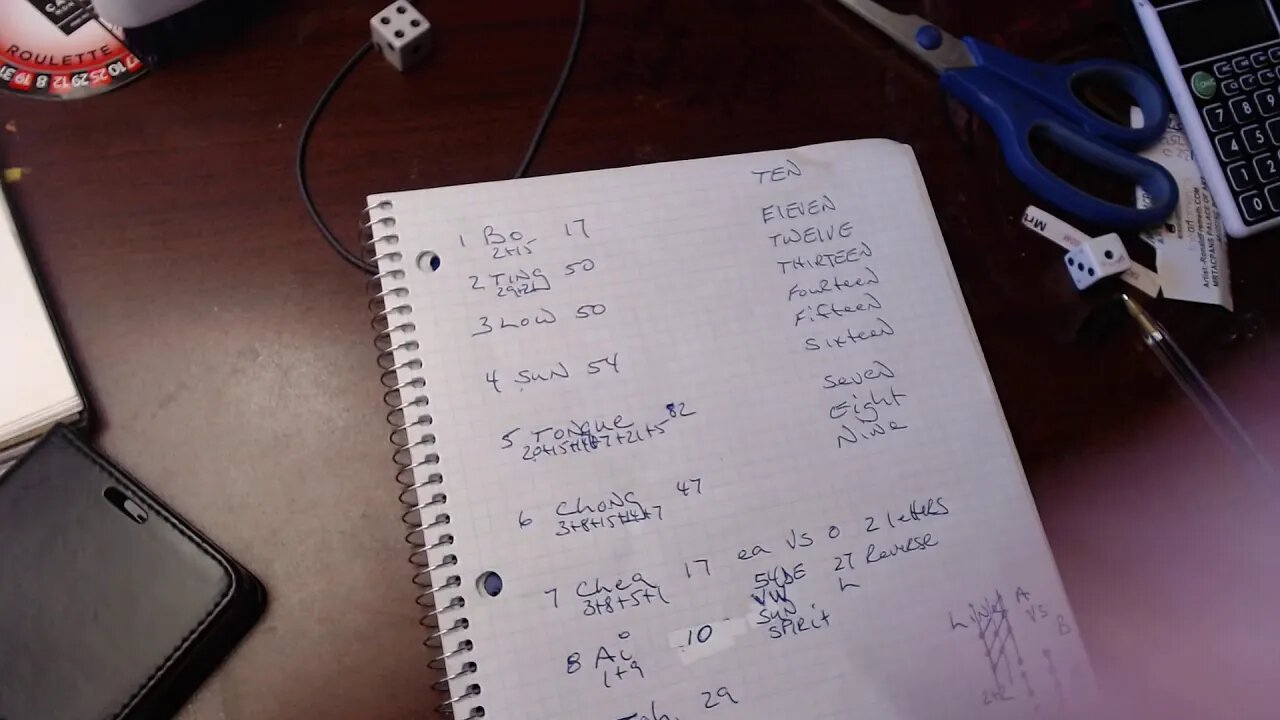 ROULETTE
31 19 8 12 29 25 10
TEN
ELEVEN
TWELVE
THIRTEEN
Fourteen
Fifteen
Sixteen
Seven
Eight
Nine
1 Bo 17
2+15
2 Ting 50
3 LOW 50
4 SUN 54
5 Tongue 82
6 Chong 47
3+8+15+14+7
7 Chea 17 ea VS 0 2 letters
3+8+5+1
27 Reverse
VW
SUN
SPIRIT
8 Ai 10
1+9
29
A
VS
B
Mr
MRTACPANS PALACE OF
7 8 9
4 5
1 2
0